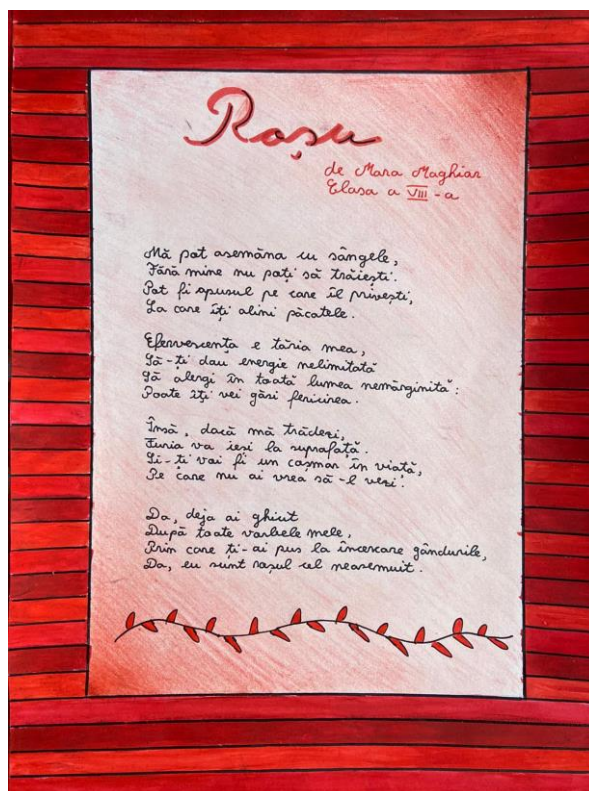 Roșu
de Mara Maghiar
Clasa a VIII-a
Mă pot asemăna cu sângele,
Fără mine nu poți să trăiești.
Pot fi apusul pe care îl privești,
La care îți alini păcatele.
Efervescența e tăria mea,
Să-ți dau energie nelimitată
Să alergi în toată lumea nemărginită:
Poate îți vei găsi fericirea.
Însă, dacă mă trădezi,
Furia va ieși la suprafață.
Și-ți voi fi un coșmar în viață,
Pe care nu ai vrea să-l vezi.
Da, deja ai ghicit
După toate vorbele mele,
Prin care ți-ai pus la încercare gândurile,
Da, eu sunt roșul cel neasemuit.